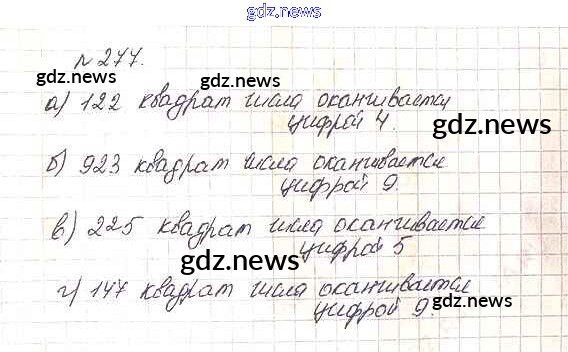 gdz.news
№ 277.
gdz.news gdz.news
а) 122 квадрат числа оканчивается
цифрой 4.
gdz.news
б) 923 квадрат числа оканчивается
цифрой 9.
в) 225 квадрат числа оканчивается
цифрой 5
gdz.news
г) 147 квадрат числа оканчивается
цифрой 9.
gdz.news